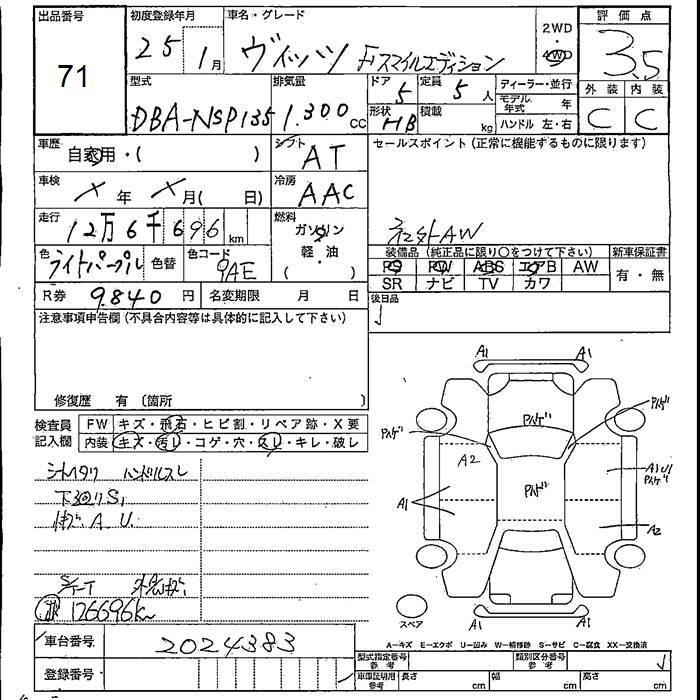 出品番号 初度登録年月 車名・グレード 2WD・4WD 評価点
71 25 1月 ヴィッツ Fスマイルエディション 3.5
型式 排気量 ドア 定員 ディーラー・並行 外装 内装
DBA-NSP135 1.300cc 5 5人 モデル年式 年 C C
形状 HB 積載 kg ハンドル 左・右
車歴 自家用・( ) シフト AT セールスポイント(正常に機能するものに限ります)
車検 × 年 × 月( 日) 冷房 AAC
走行 12万6千696km 燃料 ガソリン 軽・油 ( ) 社外AW
装備品(純正品に限り〇をつけて下さい) 新車保証書
色 ライトパープル 色替 色コード 9AE
PS PW ABS エアB AW 有・無
SR ナビ TV カワ
R券 9.840円 名変期限 月 日 後日品
注意事項申告欄(不具合内容等は具体的に記入して下さい)
修復歴 有〔箇所 〕
検査員記入欄 FW キズ・飛石・ヒビ割・リペア跡・X要
内装 キズ・汚レ・コゲ・穴・スレ・キレ・破レ
シートスタリ ハンドルスレ
下廻りS1
A.U.
126696km
A1 A1
A2 A1 A1 A2
A1 A1
スペア
A-キズ E-エクボ U-凹み W-補修跡 S-サビ C-腐食 XX-交換済
車台番号 2024383
型式指定番号 参考 類別区分番号 参考
登録番号
車庫証明用 参考 長さ cm 幅 cm 高さ cm